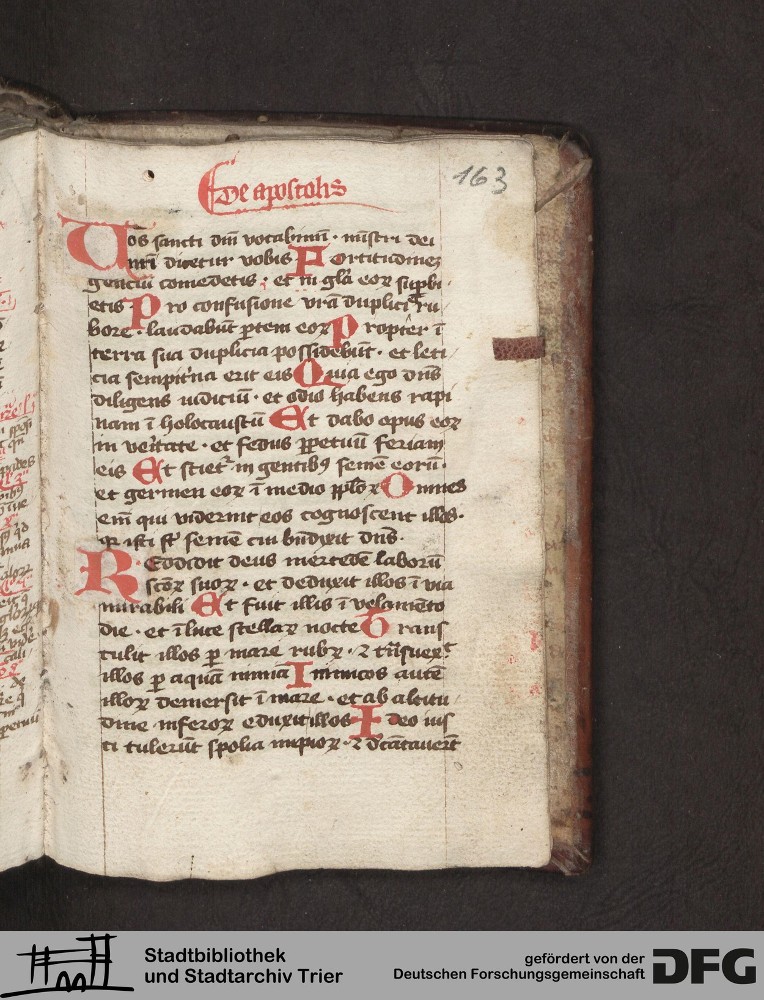 De apostolis
163
Uos sancti dnī vocabimī · mīstri dei
nrī dicetur vobis Fortitudinez
genciū comedetis · et in glā eoꝝ suꝑbi
etis Pro confusione vrā duplici ru
bore · laudabūt ꝑtem eoꝝ Propter ī
terra sua duplicia possidebūt · et leti
cia sempit'na erit eis Quia ego dn̄s
diligens iudiciū · et odio habens rapi
nam ī holocaustū Et dabo opus eoꝝ
in veritate · et fedus ꝑpetuū feriam
eis Et sciet' in gentibꝫ semē eorū ·
et germen eoꝝ ī medio pplōꝝ Omnes
em̄ qui viderint eos cognoscent illos ·
qꝛ isti st̄ semē cui bn̄dixit dn̄s ·
Reddidit deus mercedē laborū
scōꝝ suoꝝ · et deduxit illos ī via
mirabili Et fuit illis ī velamēto
die · et ī luce stellaꝝ nocte Trans
tulit illos ꝑ mare rubꝝ · ⁊ trāsuex̄t
illos ꝑ aquā nimiā Inimicos autē
illoꝝ demersit ī mare · et ab altitu
dine inferoꝝ eduxit illos Ideo ius
ti tulerūt spolia impioꝝ · ⁊ dcātauer̄t
Stadtbibliothek
und Stadtarchiv Trier
gefördert von der
Deutschen Forschungsgemeinschaft
DFG